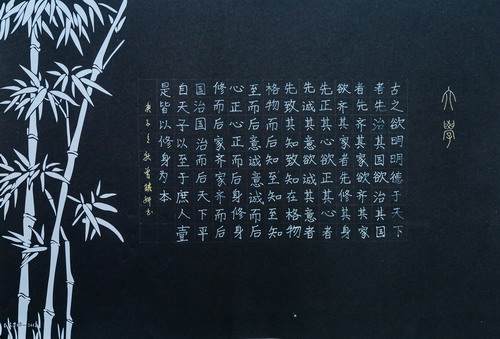 大學
古之欲明明德于天下
者先治其国欲治其国
者先齐其家欲齐其家
欲齐其家者先修其身
先正其心欲正其心者
先诚其意欲诚其意者
先致其知致知在格物
格物而后知至知至知
至而后意诚意诚而后
心正心正而后身修身
修而后家齐家齐而后
国治国治而后天下平
自天子以至于庶人壹
是皆以修身为本
庚子之秋